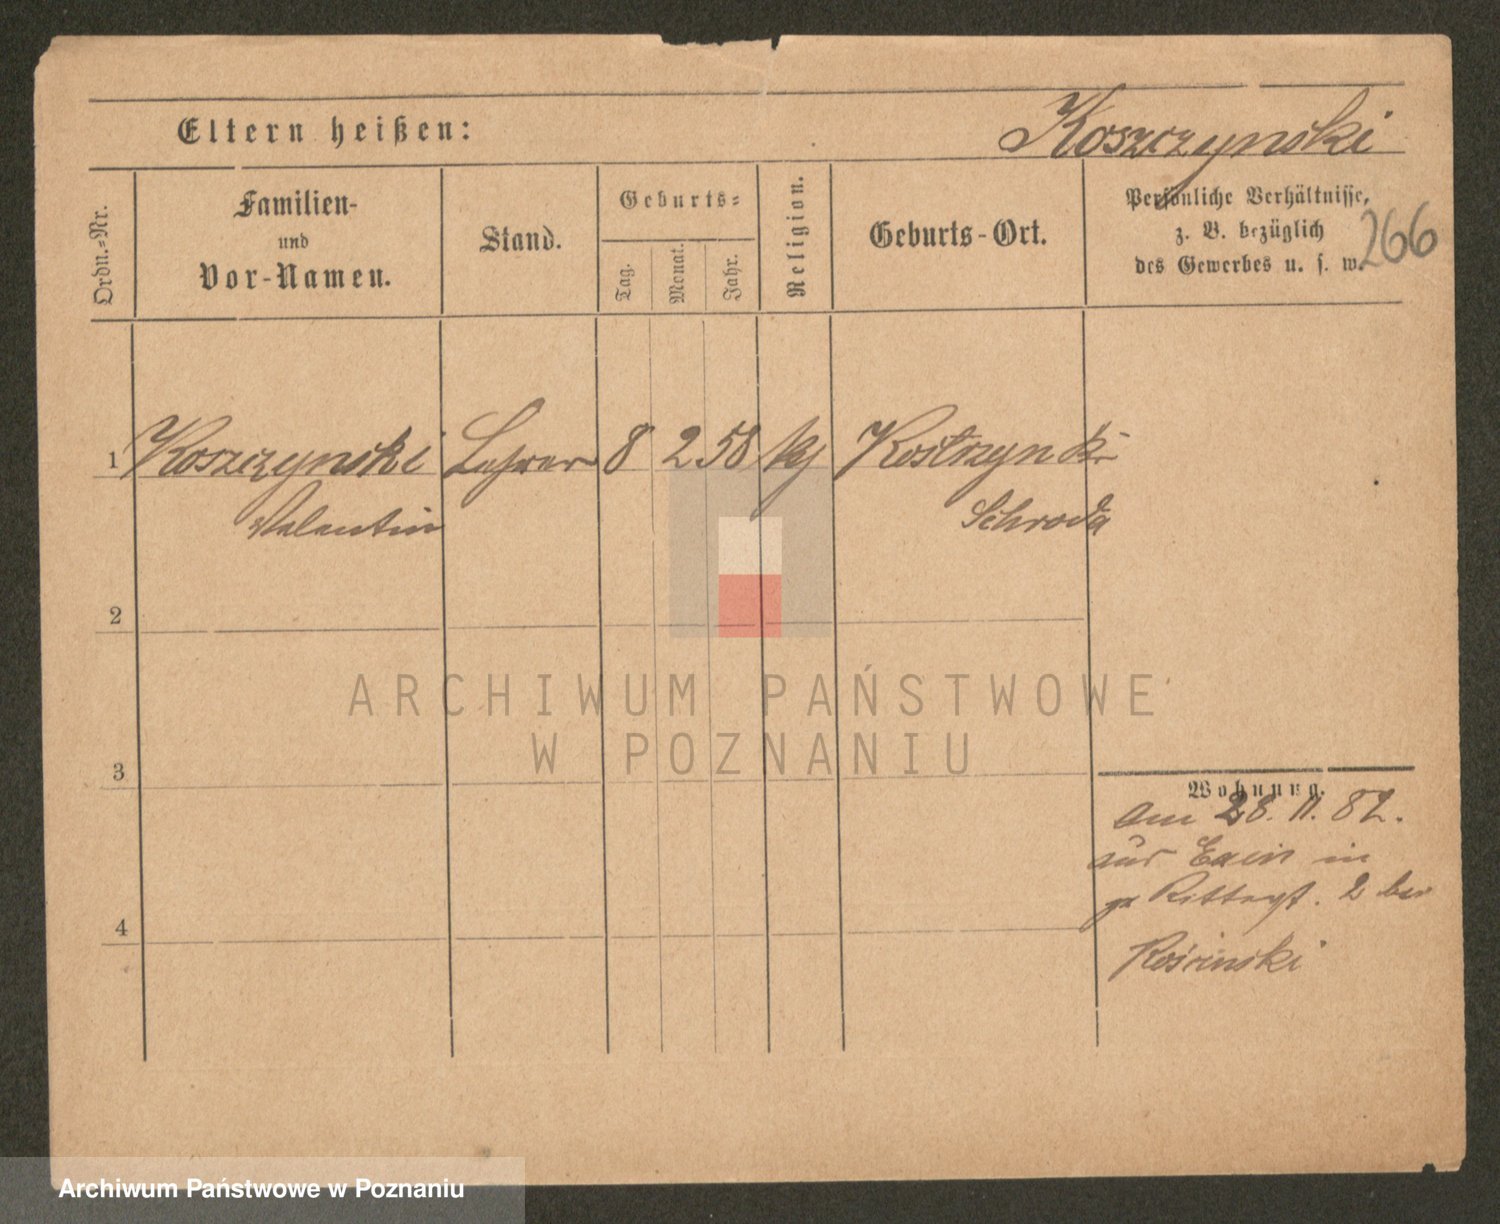 Eltern heißen:
Koszczynski
Ordn.-Nr.
Familien-
und
Vor-Namen.
Stand.
Geburts-
Tag.
Monat.
Jahr.
Religion.
Geburts-Ort.
Persönliche Verhältnisse,
z. B. bezüglich
des Gewerbes u. s. w.
266
1 Koszczynski Lehrer 8 2 58 kj Kostrzyn
Valentin Schroda
2
3
4
Wohnung.
am 28. 11. 82.
aus Exin in
gr Ritterst. 2 bei
ARCHIWUM PAŃSTWOWE
W POZNANIU
Archiwum Państwowe w Poznaniu